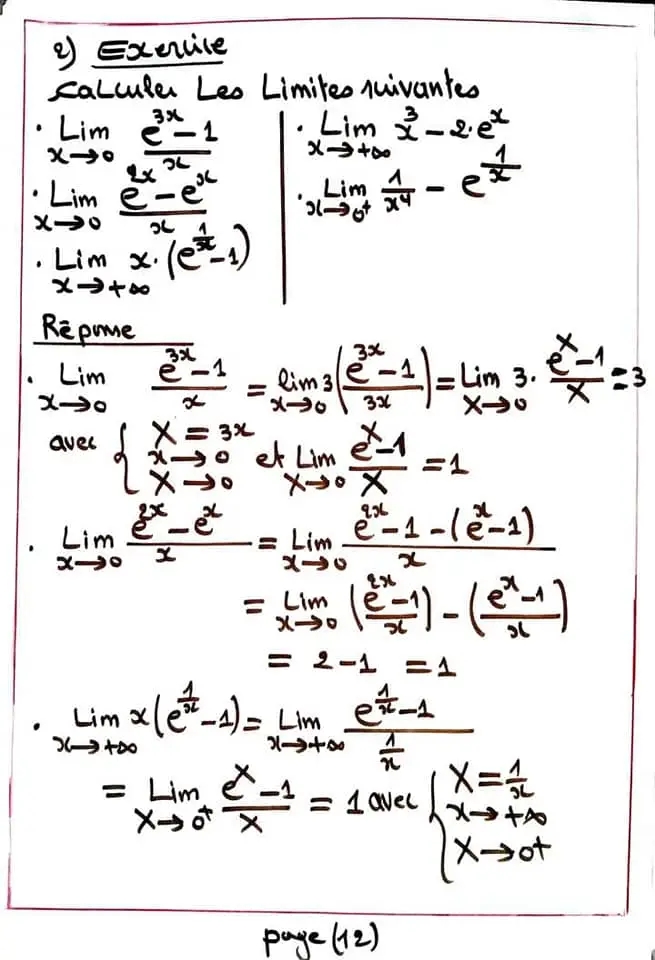 2) Exercice
Calculer Les Limites suivantes
• Lim x→0 (e^{3x} - 1)/x
• Lim x→0 (e^{2x} - e^x)/x
• Lim x→+∞ x·(e^{1/x} - 1)
• Lim x→+∞ x³ - 2·e^x
• Lim x→0⁺ 1/x⁴ - e^{1/x}
Réponse
• Lim x→0 (e^{3x} - 1)/x = lim x→0 3((e^{3x} - 1)/3x) = Lim X→0 3·(e^X - 1)/X = 3
avec { X = 3x x→0 X→0 et Lim X→0 (e^X - 1)/X = 1
• Lim x→0 (e^{2x} - e^x)/x = Lim x→0 (e^{2x} - 1 - (e^x - 1))/x
= Lim x→0 ((e^{2x} - 1)/x) - ((e^x - 1)/x)
= 2 - 1 = 1
• Lim x→+∞ x(e^{1/x} - 1) = Lim x→+∞ (e^{1/x} - 1)/(1/x)
= Lim X→0⁺ (e^X - 1)/X = 1 avec { X = 1/x x→+∞ X→0+
page (12)